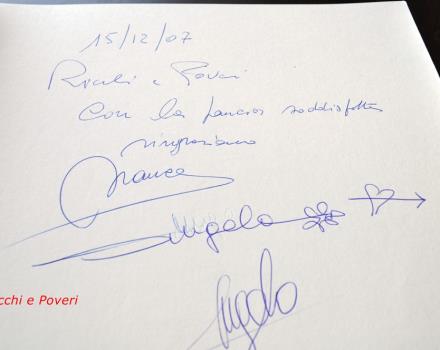 15/12/07
Ricchi e Poveri
Con la pancia soddisfatta
ringraziamo
Franco
Angela
Angelo
cchi e Poveri